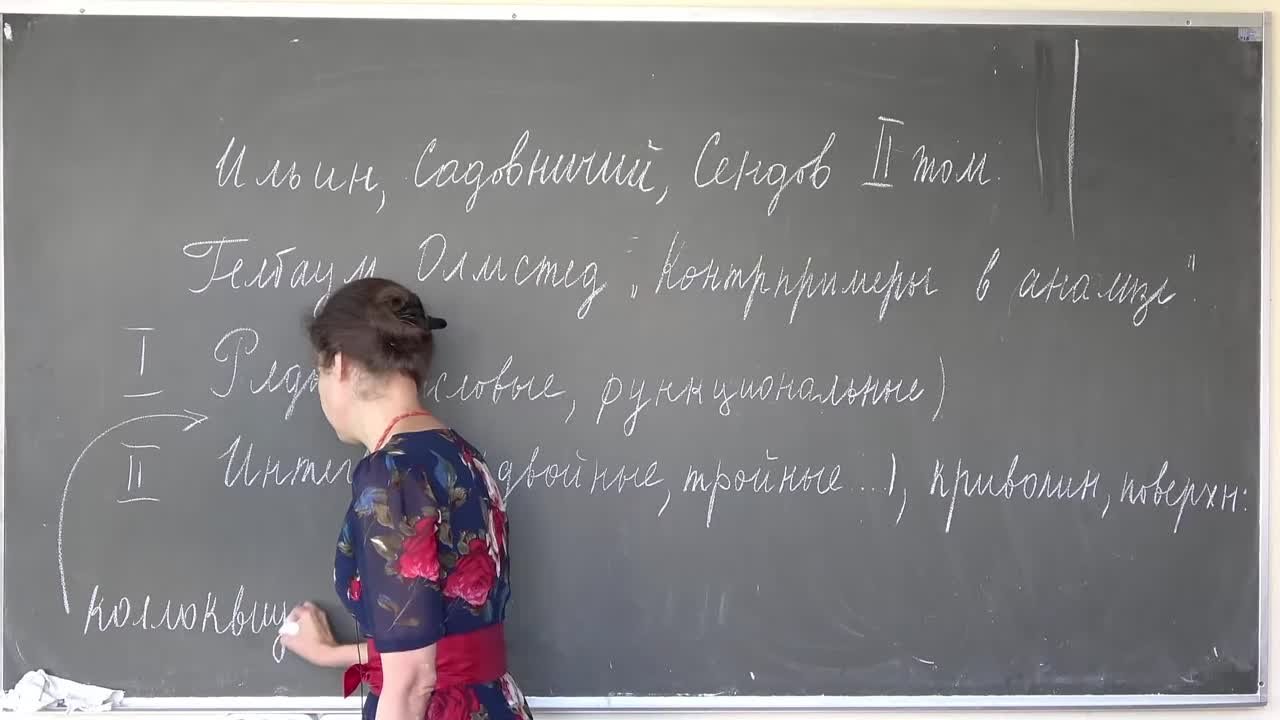 Ильин, Садовничий, Сендов II том.
Гелбаум, Олмстед „Контрпримеры в анализе".
I Ряды словые, функциональные)
II Интег двойные, тройные...), криволин, поверхн.
коллоквиу